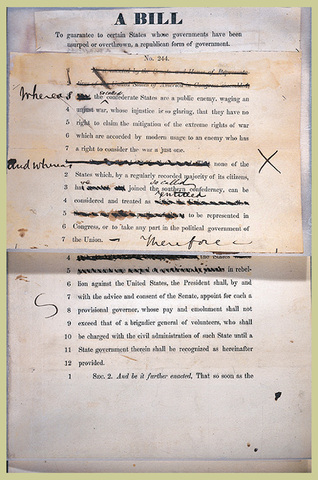 A BILL
To guarantee to certain States whose governments have been
usurped or overthrown, a republican form of government.
No. 244.
1
2 States of America
Whereas 3 the so called confederate States are a public enemy, waging an
4 unjust war, whose injustice is so glaring, that they have no
5 right to claim the mitigation of the extreme rights of war
6 which are accorded by modern usage to an enemy who has
7 a right to consider the war a just one.
And whereas none of the
2 States which, by a regularly recorded majority of its citizens,
3 has joined the so called southern confederacy, can be
4 considered and treated as entitled
5 to be represented in
6 Congress, or to take any part in the political government of
7 the Union. — Therefore —
4
5 in rebel-
6 lion against the United States, the President shall, by and
7 with the advice and consent of the Senate, appoint for each a
8 provisional governor, whose pay and emolument shall not
9 exceed that of a brigadier general of volunteers, who shall
10 be charged with the civil administration of such State until a
11 State government therein shall be recognized as hereinafter
12 provided.
1 Sec. 2. And be it further enacted, That so soon as the